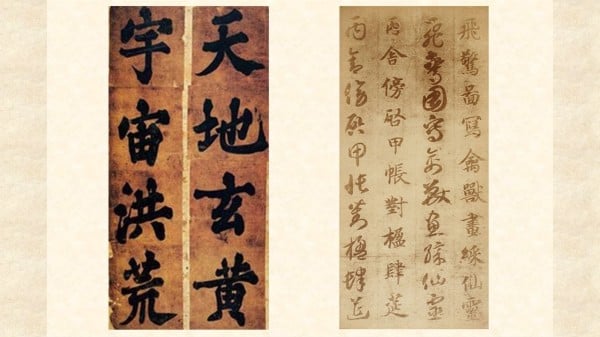 天地玄黃
宇宙洪荒
飛驚啚寫禽獸畫綵仙靈
飛驚圖寫禽獸畫綵仙靈
丙舍傍啓甲帳對楹肆筵
丙舍傍啓甲帳對楹肆筵